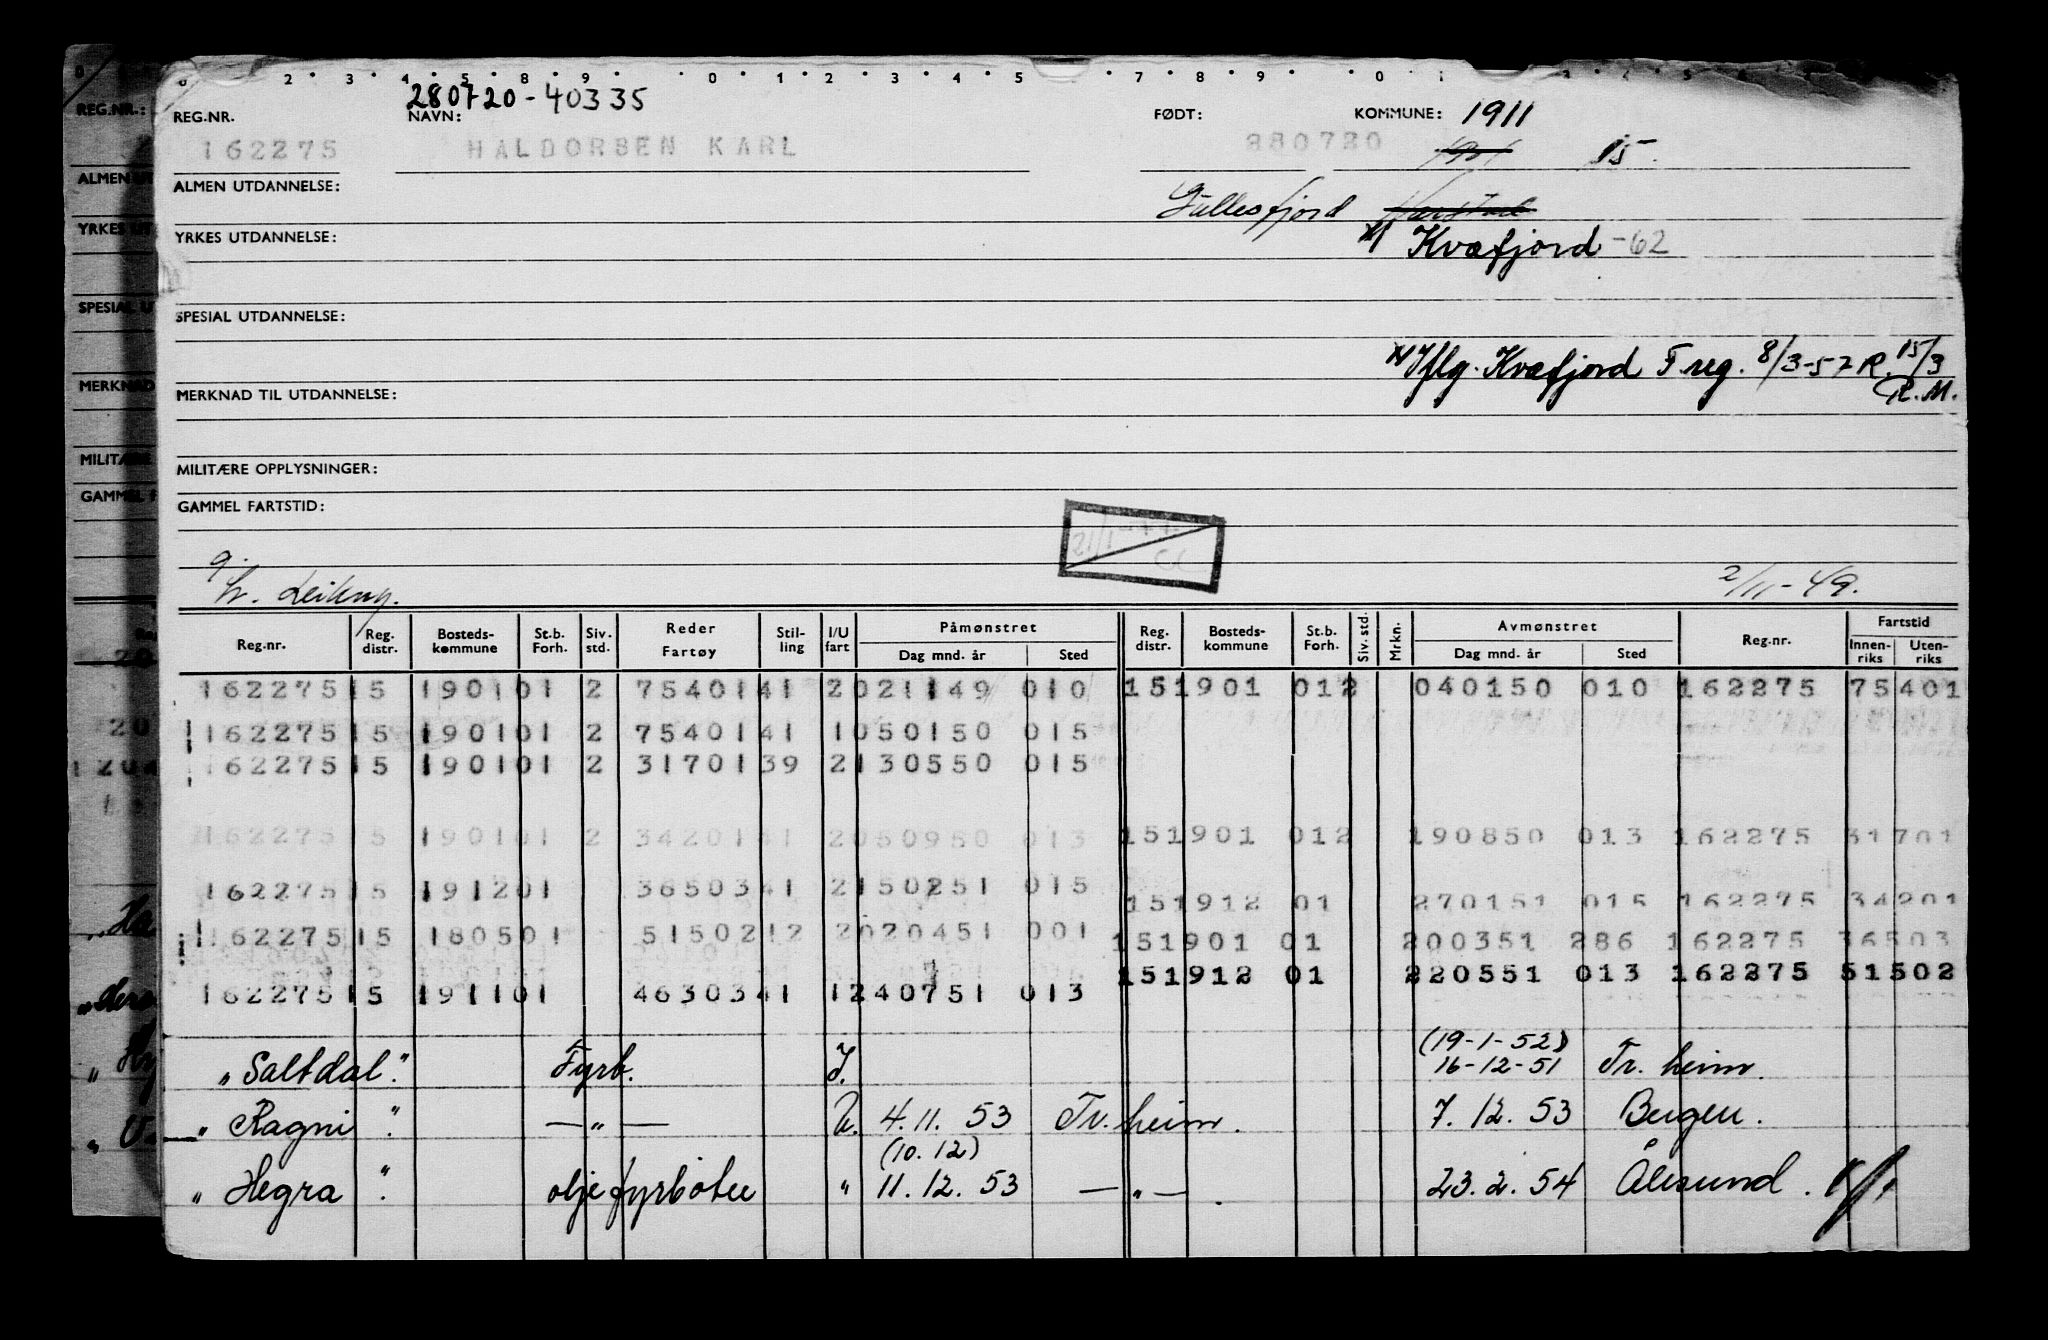 280720-40335
REG.NR. NAVN: FØDT: KOMMUNE: 1911
162275 HALDORSEN KARL 280720 1901 15.
ALMEN UTDANNELSE:
Gullesfjord Harstad
YRKES UTDANNELSE: Kvæfjord -62
SPESIAL UTDANNELSE:
Iflg. Kvæfjord F reg. 8/3-57 R. 15/3
MERKNAD TIL UTDANNELSE: R.M.
MILITÆRE OPPLYSNINGER:
GAMMEL FARTSTID:
2/11-49.
Reg.nr. Reg. distr. Bosteds-kommune St.b. Forh. Siv. std. Reder Fartøy Stil-ling I/U fart Påmønstret Dag mnd. år Sted Reg. distr. Bosteds-kommune St.b. Forh. Siv. std. Mrkn. Avmønstret Dag mnd. år Sted Reg.nr. Fartstid Innen-riks Uten-riks
162275 15 1901 01 2 75401 41 2 021149 010 15 1901 01 2 040150 010 162275 75401
162275 15 1901 01 2 75401 41 1 050150 015
162275 15 1901 01 2 31701 39 2 130550 015
162275 15 1901 01 2 34201 41 2 050950 013 15 1901 01 2 190850 013 162275 31701
162275 15 1912 01 36503 41 2 150251 015 15 1912 01 270151 015 162275 34201
162275 15 1805 01 51502 12 2 020451 001 15 1901 01 200351 286 162275 36503
162275 15 1911 01 46303 41 1 240751 013 15 1912 01 220551 013 162275 51502
(19-1-52)
"Saltdal". Fyrb. I. 16-12-51 Tr. heim.
"Ragni". —"— U. 4.11.53 Tr. heim. 7.12.53 Bergen.
(10.12)
"Hegra". oljefyrbøter " 11.12.53 —"—. 23.2.54 Ålesund.